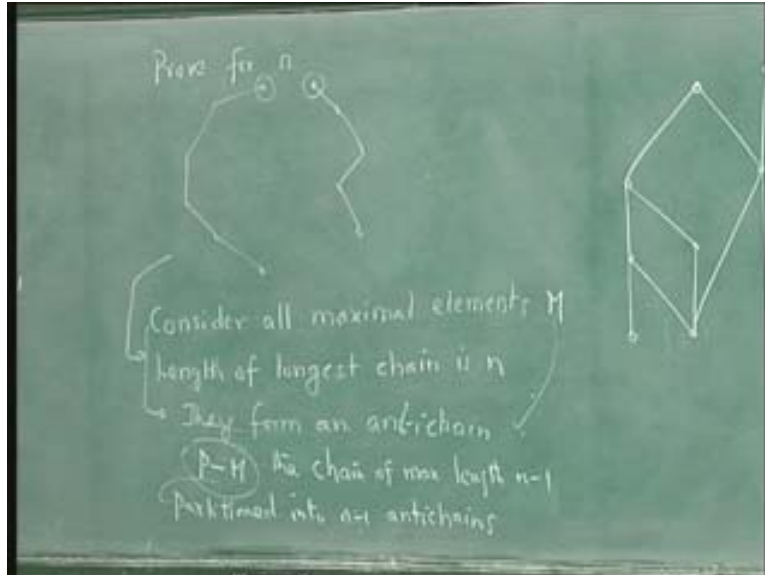 Prove for n
Consider all maximal elements M
Length of longest chain is n
They form an antichain
P-M the chain of max length n-1
Partitioned into n-1 antichains